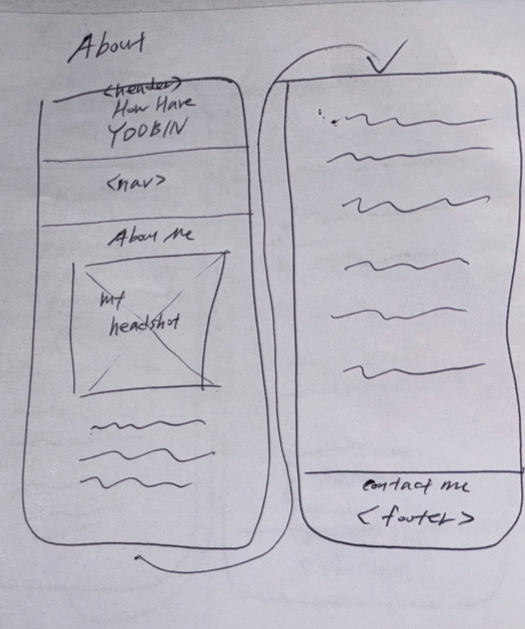 About
<header>
How Have
YOOBIN
<nav>
About Me
my
headshot
contact me
<footer>